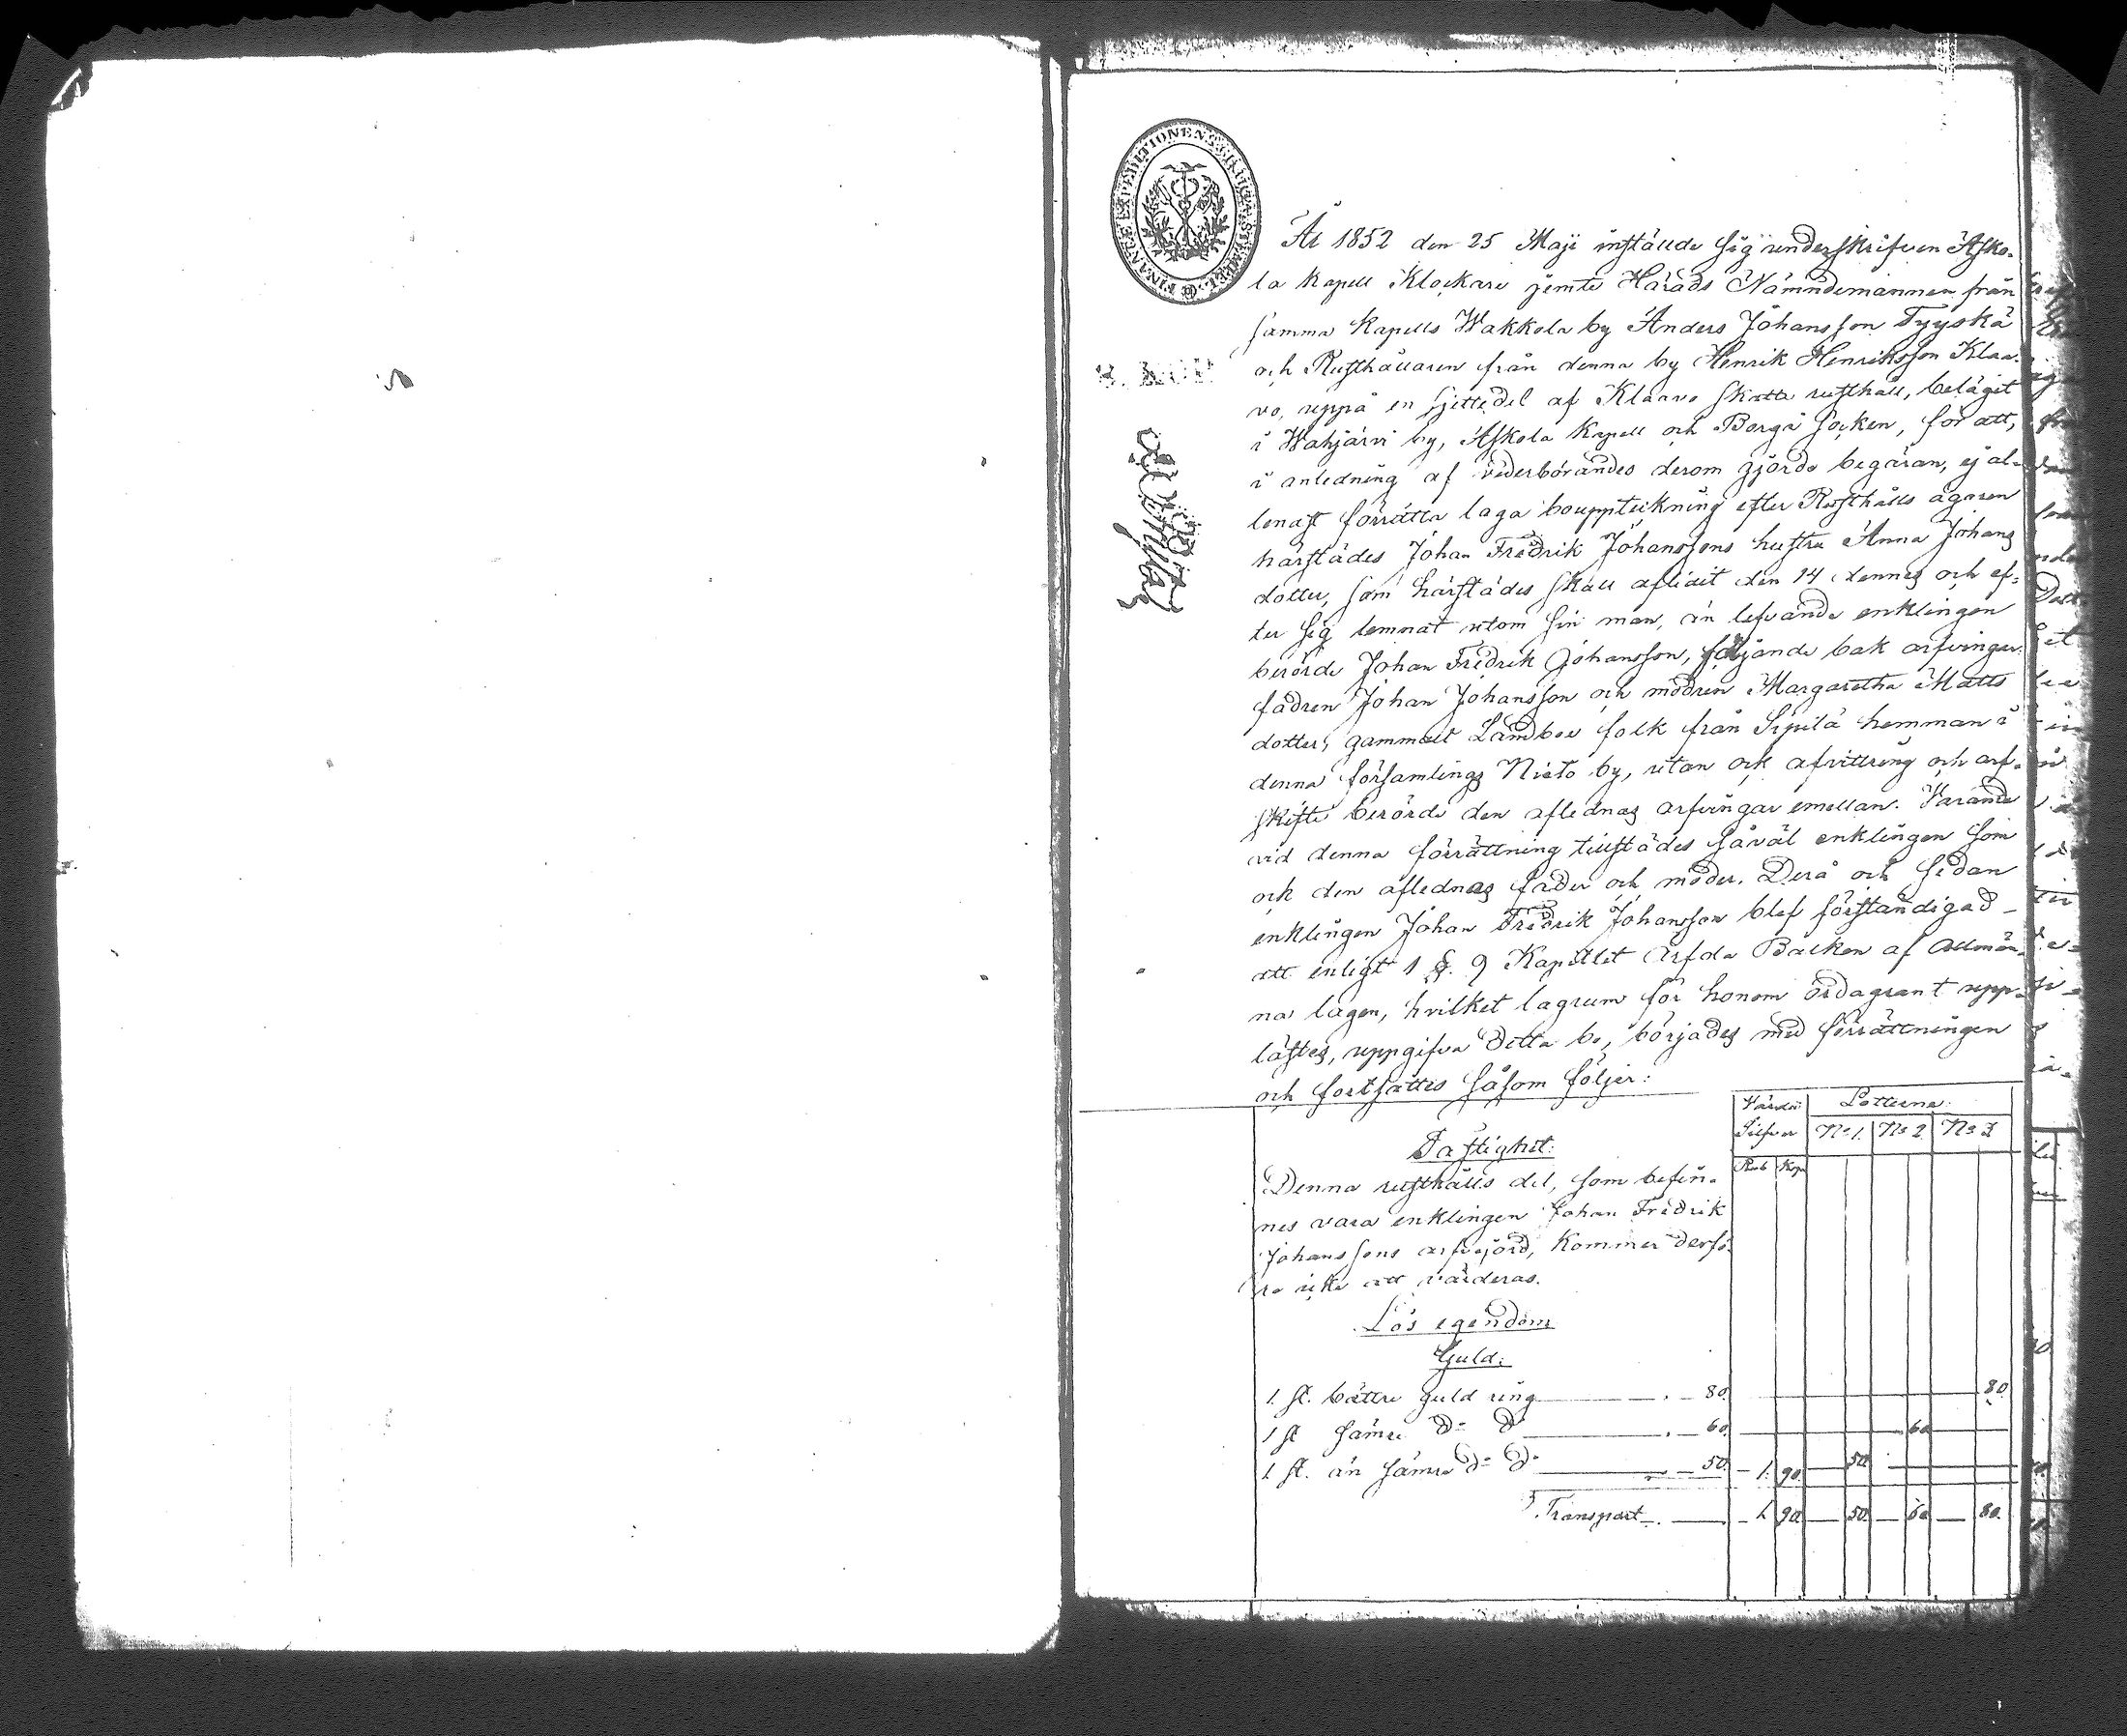 FINANCE EXPEDITIONENS CHARTA STEMPEL
År 1852 den 25 Maji inställde sig underskrifven Asko-
la Kapell Klockare jemte Härads Nämndemannen från
samma Kapells Wakkola by Anders Johansson Tyyskä
och Rusthållaren från denna by Henrik Henriksson Klaa-
vo, uppå en sjettedel af Klaavo skatte rusthåll, beläget
i Wahjärvi by, Askola Kapell och Borgå socken, för att,
i anledning af vederbörandes derom gjorde begäran, ej al-
lenast förrätta laga bouppteckning efter Rusthålls ägaren
härstädes Johan Fredrik Johanssons hustru Anna Johans
dotter, som härstädes skall aflidit den 14 dennes och ef-
ter sig lemnat utom sin man, än lefvande enklingen
berörde Johan Fredrik Johansson, följande bak arfvingar:
fadren Johan Johansson och modren Margaretha Matts
dotter, gammalt Landboe folk från Sipilä hemman i
denna församlings Nieto by, utan ock afvittring och arf-
skifte berörde den aflednas arfvingar emellan. Varande
vid denna förrättning tillstädes såväl enklingen som
ock den aflednas fader och moder. Derå och sedan
enklingen Johan Fredrik Johansson blef förständigad
att enligt 1 §. 9 Kapitlet Ärfda Balken af Allmän-
na lagen, hvilket lagrum för honom ordagrant upp-
lästes, uppgifva detta bo, börjades med förrättningen
och fortsattes såsom följer:
Värde i Silfver Lotterne:
No 1. No 2. No 3
Rub Kop
Fastighet:
Denna rusthålls del, som befin-
nes vara enklingen Johan Fredrik
Johanssons arfvejord, kommer derfö-
re icke att värderas.
Lös egendom
Guld:
1 st. bättre guld ring 80. 80
1 st sämre do do 60. 60
1 st. än sämre do do 50. 1. 90. 50.
Transport 1 90. 50. 60 80.